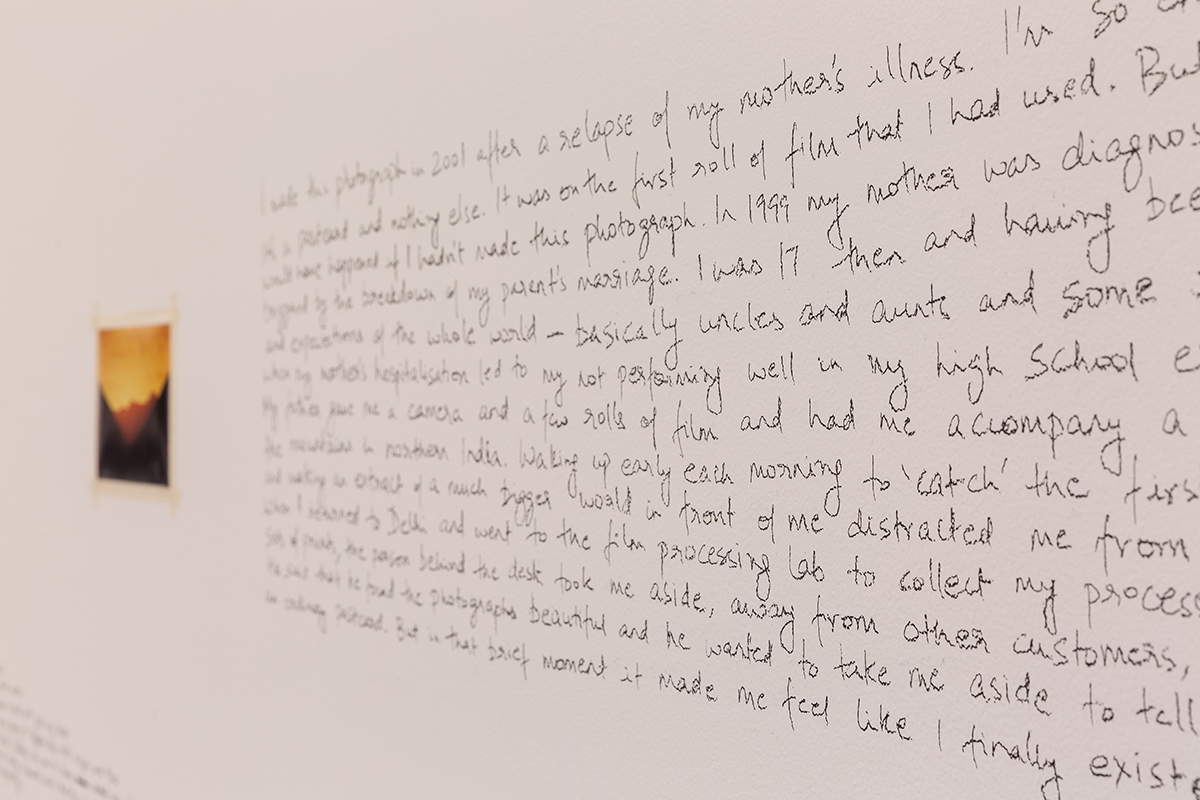 I made this photograph in 2001 after a relapse of my mother's illness. I'm so
as a postcard and nothing else. It was on the first roll of film that I had used. But
would have happened if I hadn't made this photograph. In 1999 my mother was diagnos
by the breakdown of my parent's marriage. I was 17 then and having bee
and expectations of the whole world – basically uncles and aunts and some
when my mother's hospitalisation led to my not performing well in my high School e
My father gave me a camera and a few rolls of film and had me accompany a
the mountains in northern India. Waking up early each morning to 'catch' the firs
and making an extract of a much bigger world in front of me distracted me from
when I returned to Delhi and went to the film processing lab to collect my process
sets of prints, the person behind the desk took me aside, away from other customers,
He said that he found the photographs beautiful and he wanted to take me aside to tell
an ordinary postcard. But in that brief moment it made me feel like I finally existe